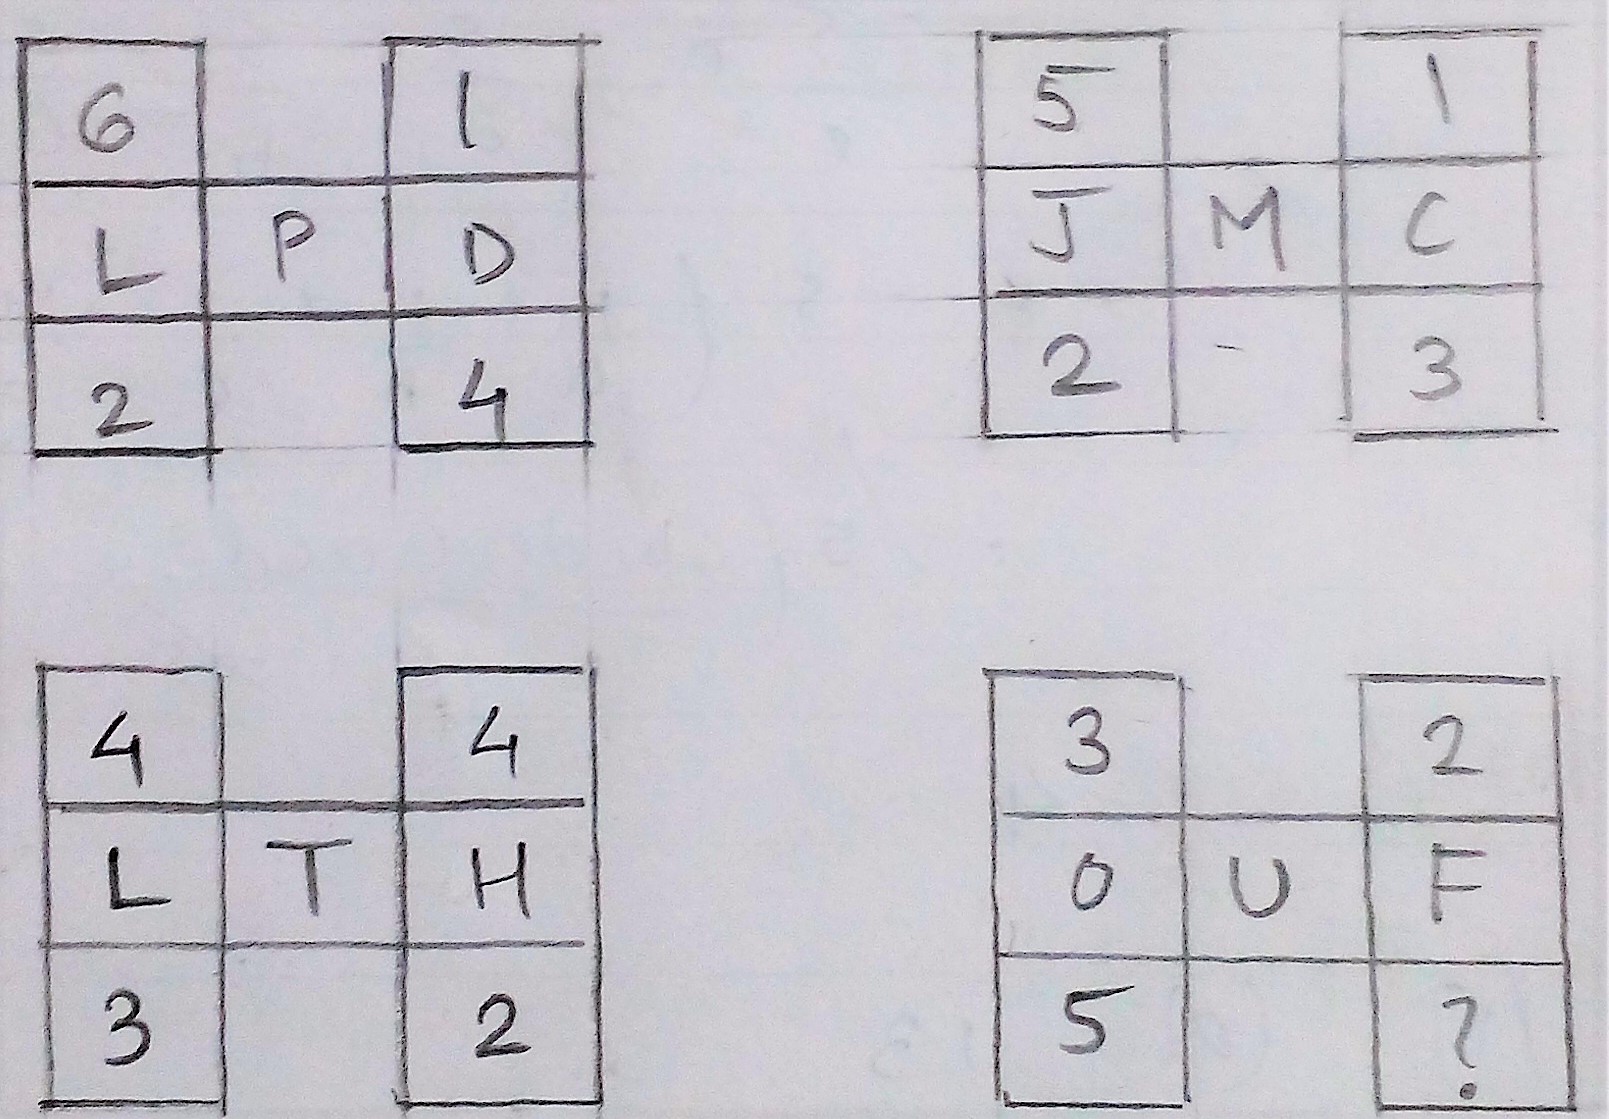 6 1
L P D
2 4
5 1
J M C
2 - 3
4 4
L T H
3 2
3 2
O U F
5 ?